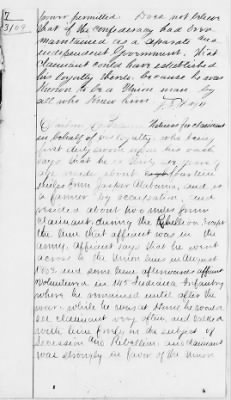 7
3109
power permitted. Does not believe
that if the confederacy had been
maintained as a separate and
independent Government, that
claimant could have established
his loyalty thereto because he was
known to be a Union man by
all who knew him.
Witness for claimant
in behalf of his loyalty who being
first duly sworn upon his oath
says that he is years of
age reside about fourteen
miles from Jasper Alabama, and is
a farmer by occupation, and
resided about two miles from
claimant during the Rebellion except
the time that affiant was in the
army. Affiant says that he went
across to the Union lines in August
1862 and some time afterwards affiant
volunteered in Indiana Infantry
where he remained until after the
war. While he was at Home he would
see claimant very often and converse
with him freely on the subject of
Secession and Rebellion and claimant
was strongly in favor of the Union